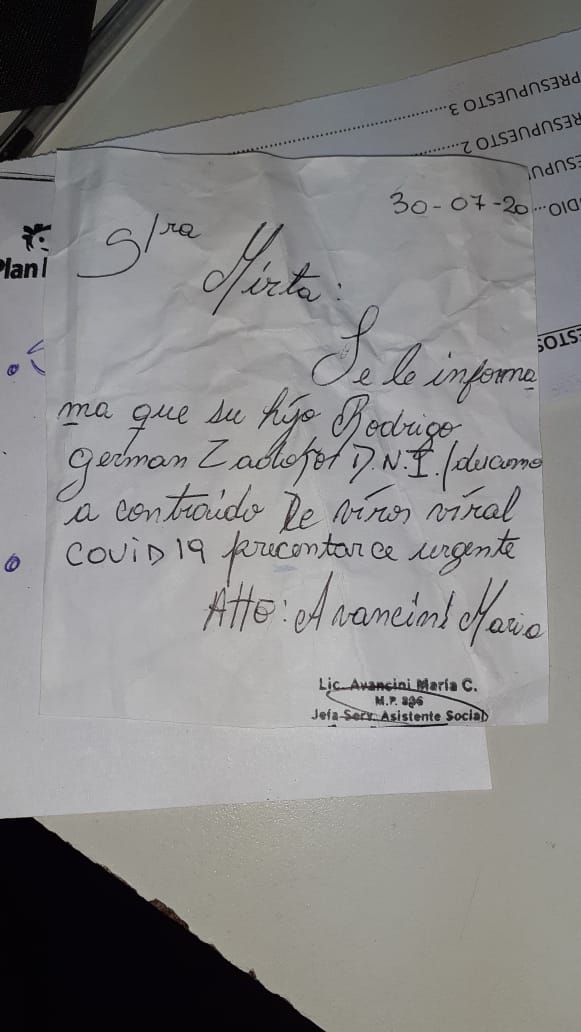 PRESUPUESTO 3
RESUPUESTO 2
Plan
30-07-20
S/ra
Mirta:
Se le informa
ma que su hijo Rodrigo
German D.N.I.
a contraido De viros viral
COViD19 precentarce urgente
Atte: Avancini Maria
Lic. Avancini María C.
M.P.
Jefa Serv. Asistente Social